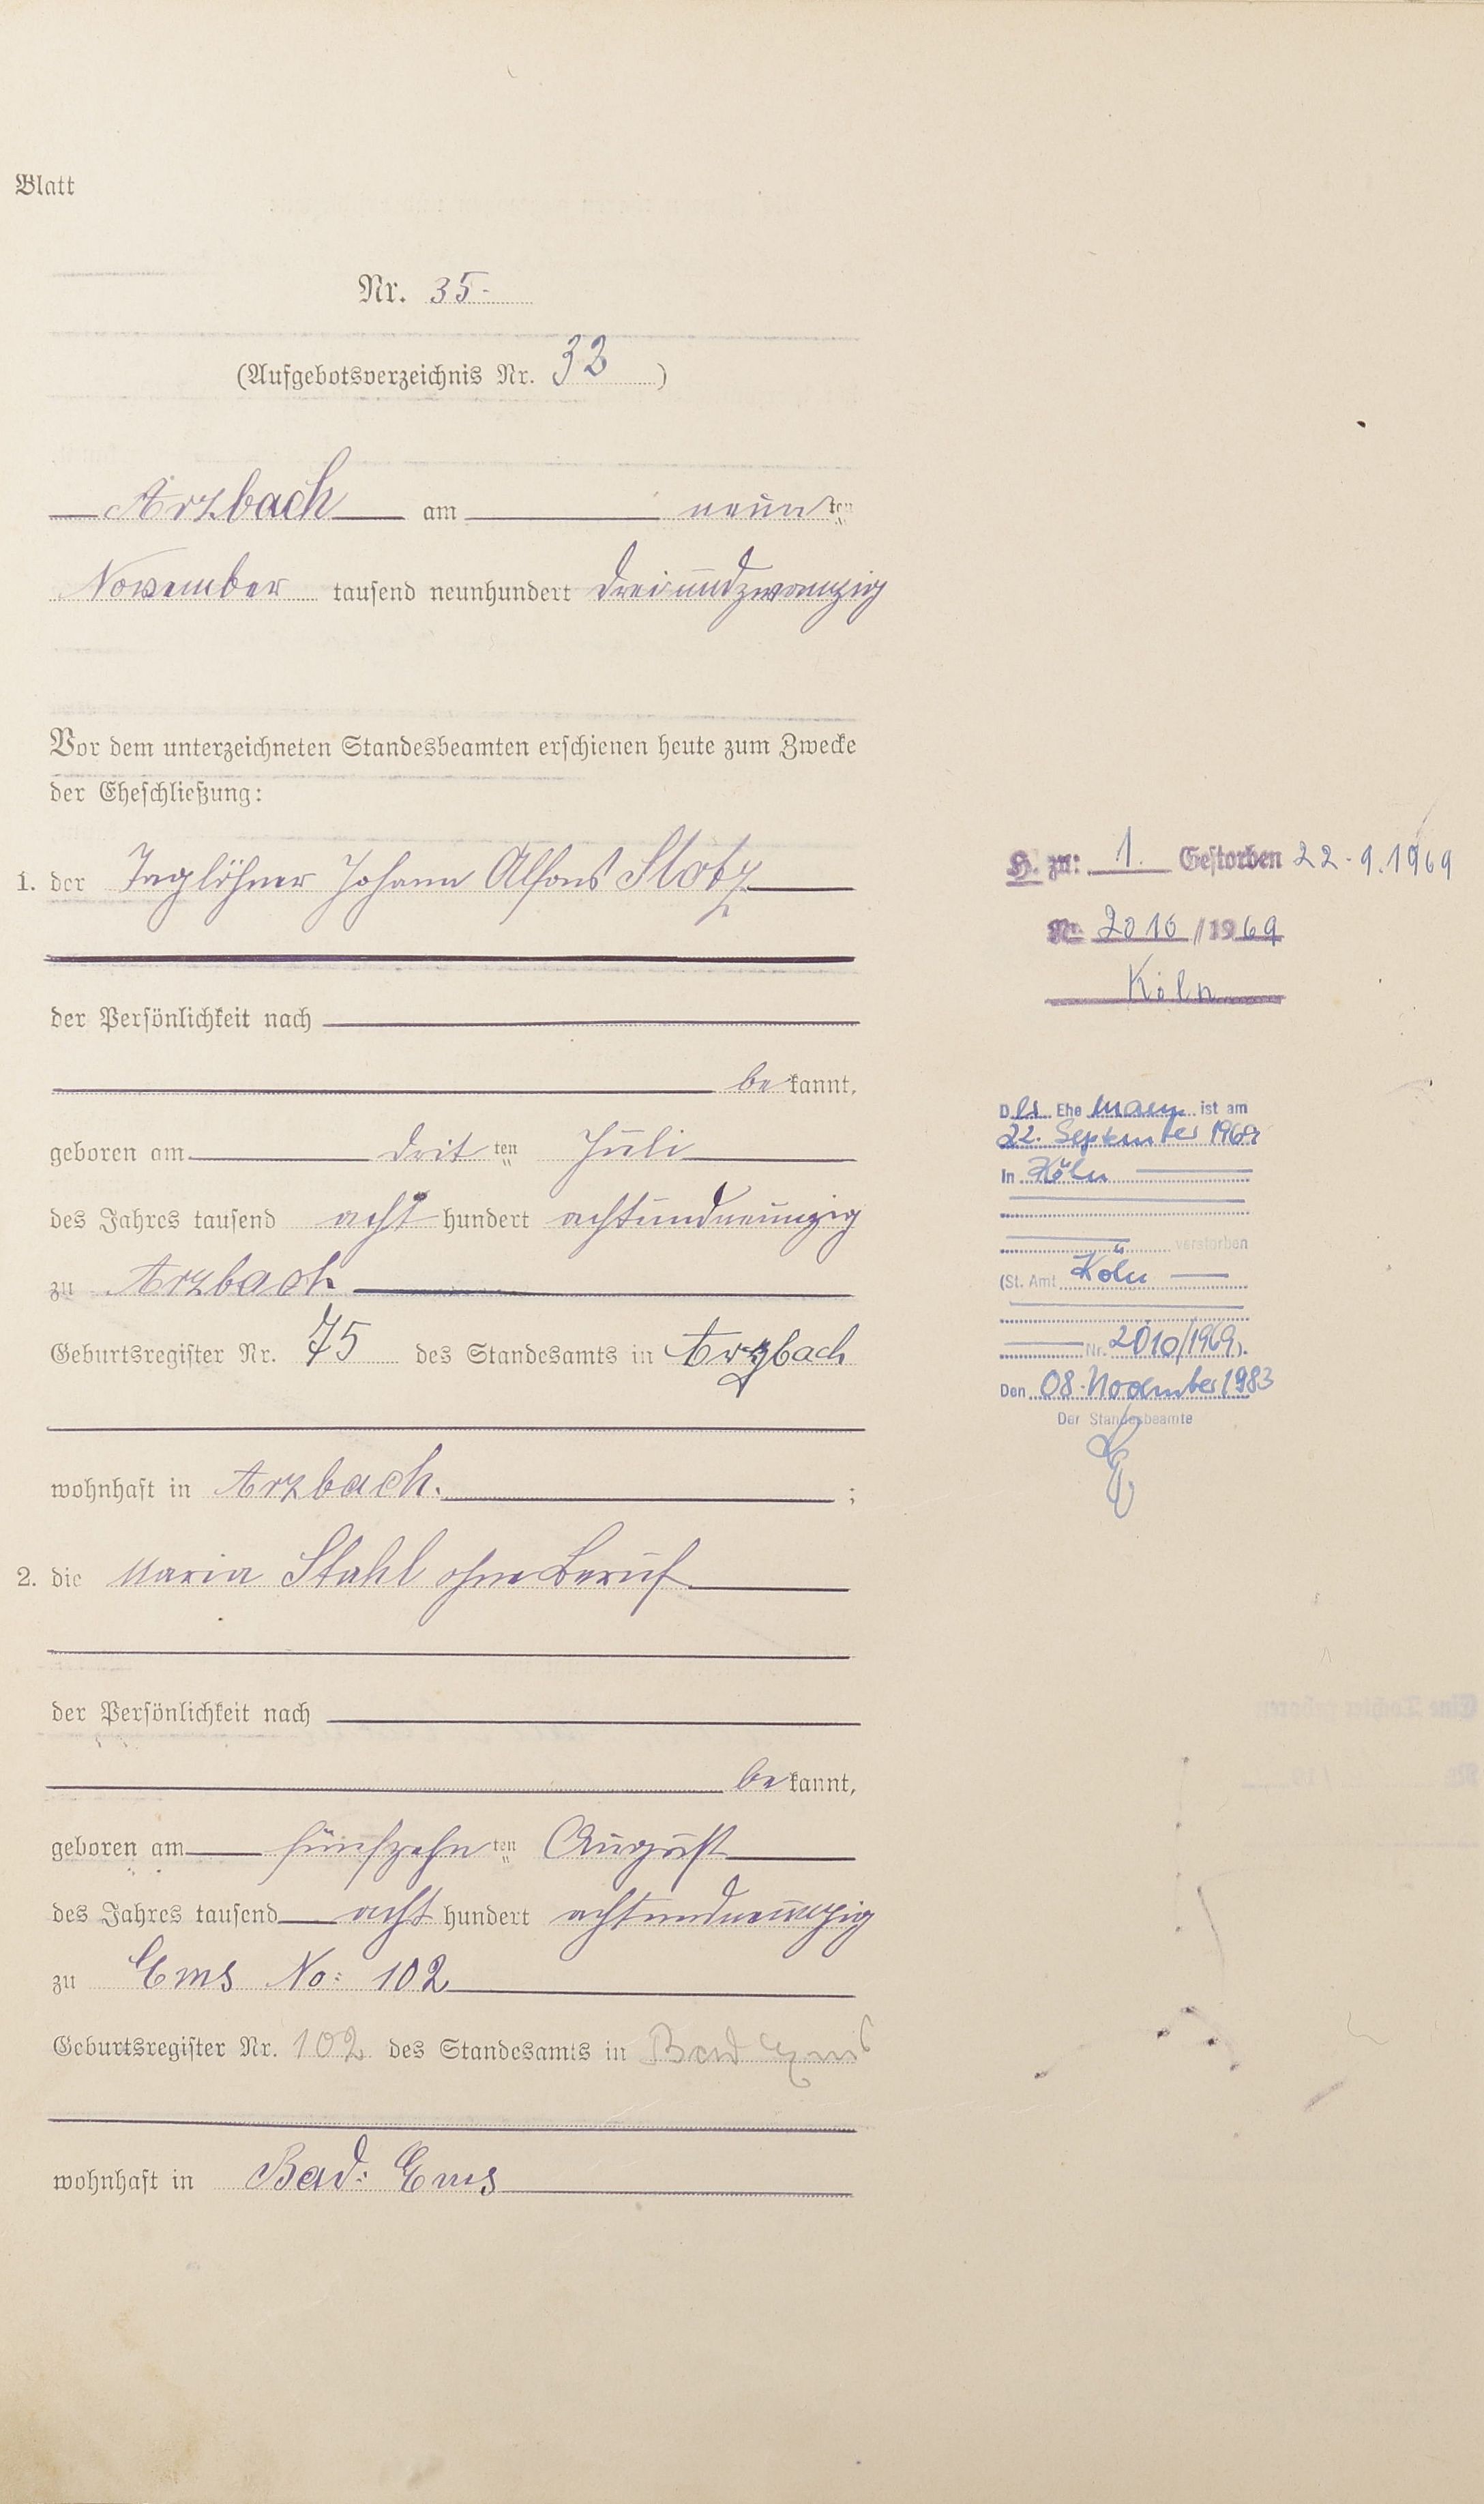 Blatt
Nr. 35.
(Aufgebotsverzeichnis Nr. 32)
Arzbach am neun ten
November tausend neunhundert dreiundzwanzig
Vor dem unterzeichneten Standesbeamten erschienen heute zum Zwecke
der Eheschließung:
1. der Taglöhner Johann Alfons Stotz
der Persönlichkeit nach
be kannt,
geboren am drit ten Juli
des Jahres tausend acht hundert achtundneunzig
zu Arzbach
Geburtsregister Nr. 75 des Standesamts in Arzbach
wohnhaft in Arzbach. ;
2. die Maria Stahl ohne Beruf
der Persönlichkeit nach
be kannt,
geboren am fünfzehn ten August
des Jahres tausend acht hundert achtundneunzig
zu Ems No: 102
Geburtsregister Nr. 102 des Standesamts in Bad Ems
wohnhaft in Bad: Ems
H. zu: 1. Gestorben 22.9.1969
Nr. 2010/1969
Köln
Der Ehemann ist am
22. September 1969
In Köln
verstorben
(St. Amt Köln
Nr. 2010/1969).
Den 08. November 1983
Der Standesbeamte